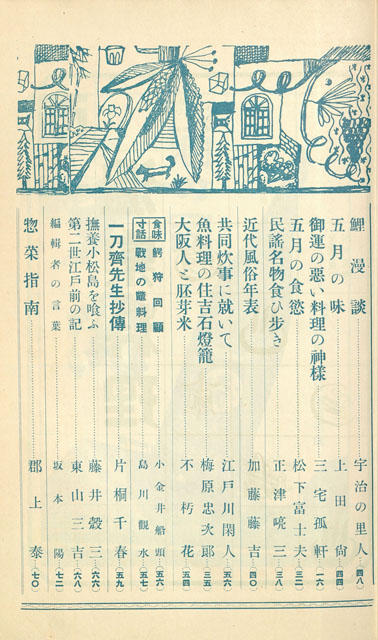 鯉漫談 宇治の里人 (四八)
五月の味 上田尙 (四四)
御運の惡い料理の神樣 三宅孤軒 (一六)
五月の食慾 松下富士夫 (三二)
民謠名物食ひ步き 正津喨三 (三八)
近代風俗年表 加藤藤吉 (四〇)
共同炊事に就いて 江戸川閑人 (五六)
魚料理の住吉石燈籠 梅原忠次郞 (三五)
大阪人と胚芽米 不朽花 (五四)
食味寸話
鰐狩回顧 小金井船頭 (五六)
戰地の雞料理 島川觀水 (五七)
一刀齊先生抄傳 片桐千春 (五九)
撫養小松島を喰ふ 藤井毅三 (六六)
第二世江戸前の記 東山三吉 (六八)
編輯者の言葉 坂本陽 (七二)
惣菜指南 郡上泰 (七〇)